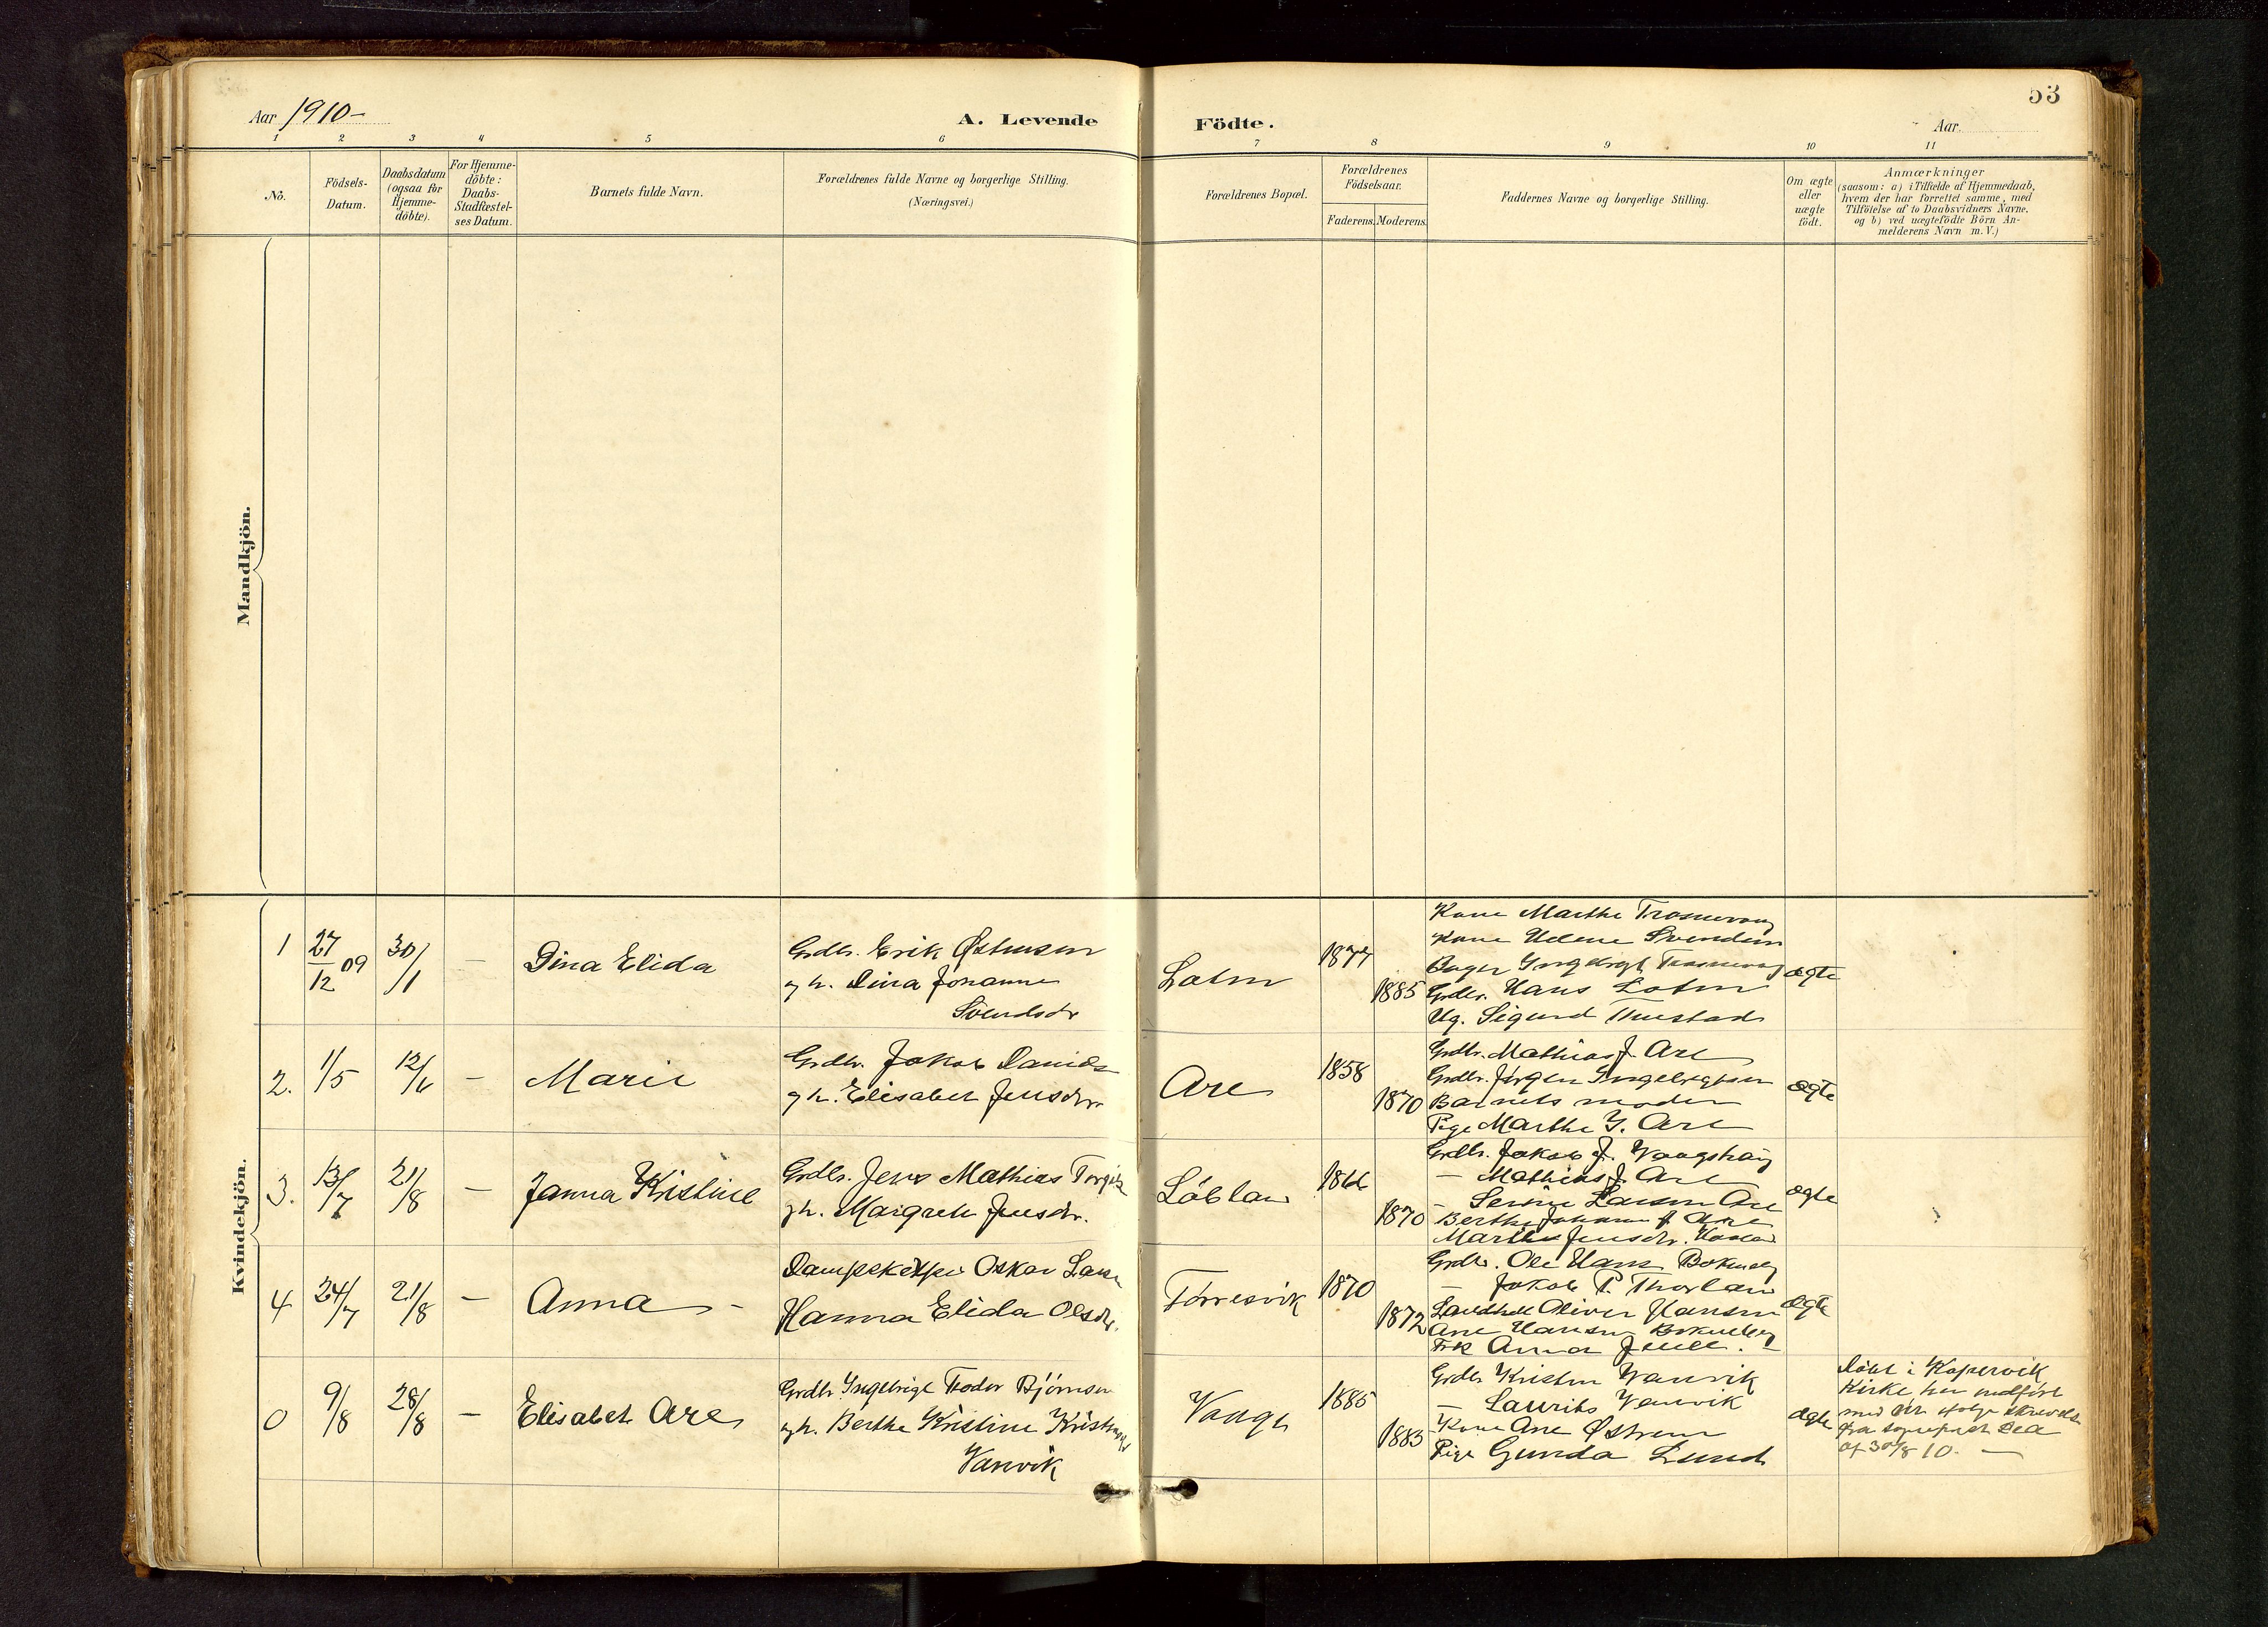 53
Aar 1910-
A. Levende Födte.
Aar
1 2 3 4 5 6 7 8 9 10 11
No.
Födsels-
Datum.
Daabsdatum
(ogsaa for
Hjemme-
döbte).
For Hjemme-
döbte:
Daabs-
Stadfæstel-
ses Datum.
Barnets fulde Navn.
Forældrenes fulde Navne og borgerlige Stilling.
(Næringsvei.)
Forældrenes Bopæl.
Forældrenes
Födselsaar.
Faderens. Moderens.
Faddernes Navne og borgerlige Stilling.
Om ægte
eller
uægte
födt.
Anmærkninger
(saasom: a) i Tilfælde af Hjemmedaab,
hvem der har forrettet samme, med
Tilföielse af to Daabsvidners Navne,
og b) ved uægtefödte Börn An-
melderens Navn m.V.)
Mandkjön.
Kvindekjön.
1 27/12 09 30/1 — Dina Elida
Grdbr. Erik Østensen
g h. Dina Johanne
Svendsdr
1877
1885
Kone Marthe
Kone Helene Svendsen
Grdbr. Hans
Ug. Sigurd
ægte
2. 1/5 12/6 — Marie
Grdbr. Jakob Davids
g h. Elisabet Jensdr.
Are
1858
1870
Grdbr. Mathias J. Are
Grdbr. Jørgen Ingebrigtsen
Barnets moder
Pige Marthe J. Are
ægte
3. 13/7 21/8 — Janna Kristine
Grdbr. Jens Mathias
g h. Margrete Jensdr.
1866
1870
Grdbr. Jakob J.
— Mathias J. Are
— Larsen Are
Berthe Johanne J. Are
Marthe Jensdr.
ægte
4 24/7 21/8 — Anna —
Oskar Larsen
Hanna Elida Olsdr.
Torresvik
1870
1872
Grdbr. Ole Hans
— Jakob P.
Oliver Hansen
Ane Hansen
Frk Anna Juell.
ægte
0 9/8 28/8 — Elisabet Are
Grdbr Ingebrigt Teodor Bjørnsen
g h. Berthe Kristine
Vanvik
Vaage
1885
1883
Grdbr Kristen Vanvik
— Laurits Vanvik
Kone Ane Østrem
Pige Gunda Lund
ægte
Döbt i Kopervik
Kirke, her indført
med ifølge skrivelse
fra
af 30/8 10. —